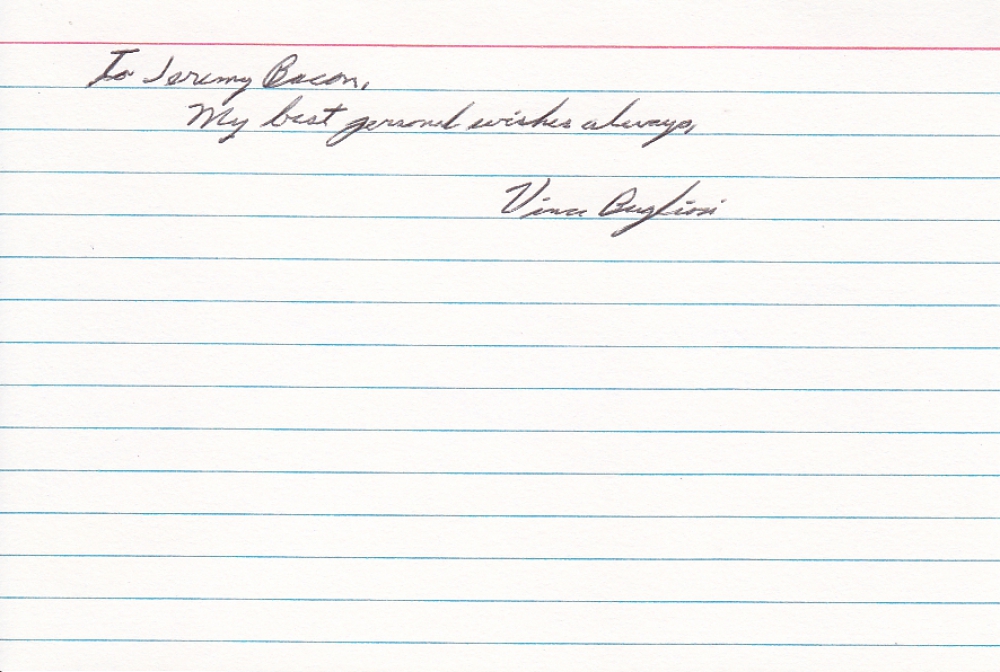 To Jeremy Bacon,
My best personal wishes always,
Vince Bugliosi